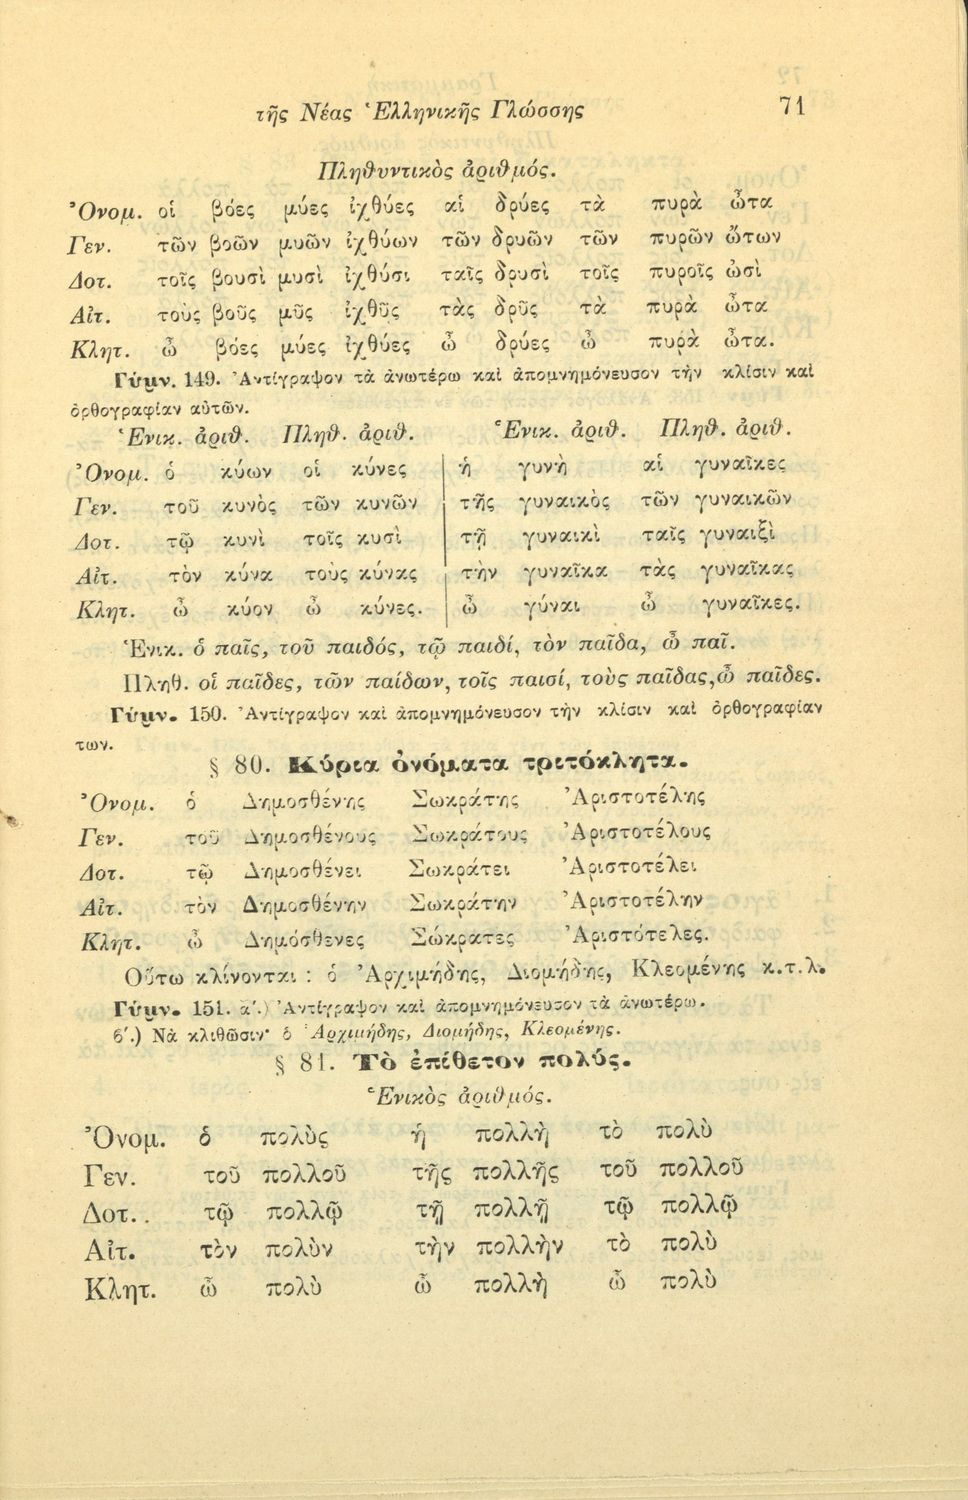 τῆς Νέας Ἑλληνικῆς Γλώσσης 71
Πληθυντικὸς ἀριθμός.
Ὀνομ. οἱ βόες μύες ἰχθύες αἱ δρύες τὰ πυρὰ ὦτα
Γεν. τῶν βοῶν μυῶν ἰχθύων τῶν δρυῶν τῶν πυρῶν ὤτων
Δοτ. τοῖς βουσὶ μυσὶ ἰχθύσι ταῖς δρυσὶ τοῖς πυροῖς ὠσὶ
Αἰτ. τοὺς βοῦς μῦς ἰχθῦς τὰς δρῦς τὰ πυρὰ ὦτα
Κλητ. ὦ βόες μύες ἰχθύες ὦ δρύες ὦ πυρὰ ὦτα.
Γύμν. 149. Ἀντίγραψον τὰ ἀνωτέρω καὶ ἀπομνημόνευσον τὴν κλίσιν καὶ
ὀρθογραφίαν αὐτῶν.
Ἑνικ. ἀριθ. Πληθ. ἀριθ. Ἑνικ. ἀριθ. Πληθ. ἀριθ.
Ὀνομ. ὁ κύων οἱ κύνες ἡ γυνὴ αἱ γυναῖκες
Γεν. τοῦ κυνὸς τῶν κυνῶν τῆς γυναικὸς τῶν γυναικῶν
Δοτ. τῷ κυνὶ τοῖς κυσὶ τῇ γυναικὶ ταῖς γυναιξὶ
Αἰτ. τὸν κύνα τοὺς κύνας τὴν γυναῖκα τὰς γυναῖκας
Κλητ. ὦ κύον ὦ κύνες. ὦ γύναι ὦ γυναῖκες.
Ἑνικ. ὁ παῖς, τοῦ παιδός, τῷ παιδί, τὸν παῖδα, ὦ παῖ.
Πληθ. οἱ παῖδες, τῶν παίδων, τοῖς παισί, τοὺς παῖδας, ὦ παῖδες.
Γύμν. 150. Ἀντίγραψον καὶ ἀπομνημόνευσον τὴν κλίσιν καὶ ὀρθογραφίαν
των.
§ 80. Κύρια ὀνόματα τριτόκλητα.
Ὀνομ. ὁ Δημοσθένης Σωκράτης Ἀριστοτέλης
Γεν. τοῦ Δημοσθένους Σωκράτους Ἀριστοτέλους
Δοτ. τῷ Δημοσθένει Σωκράτει Ἀριστοτέλει
Αἰτ. τὸν Δημοσθένην Σωκράτην Ἀριστοτέλην
Κλητ. ὦ Δημόσθενες Σώκρατες Ἀριστότελες.
Οὕτω κλίνονται : ὁ Ἀρχιμήδης, Διομήδης, Κλεομένης κ.τ.λ.
Γύμν. 151. α΄.) Ἀντίγραψον καὶ ἀπομνημόνευσον τὰ ἀνωτέρω.
β΄.) Νὰ κλιθῶσιν· ὁ Ἀρχιμήδης, Διομήδης, Κλεομένης.
§ 81. Τὸ ἐπίθετον πολύς.
Ἑνικὸς ἀριθμός.
Ὀνομ. ὁ πολὺς ἡ πολλὴ τὸ πολὺ
Γεν. τοῦ πολλοῦ τῆς πολλῆς τοῦ πολλοῦ
Δοτ. . τῷ πολλῷ τῇ πολλῇ τῷ πολλῷ
Αἰτ. τὸν πολὺν τὴν πολλὴν τὸ πολὺ
Κλητ. ὦ πολὺ ὦ πολλὴ ὦ πολὺ